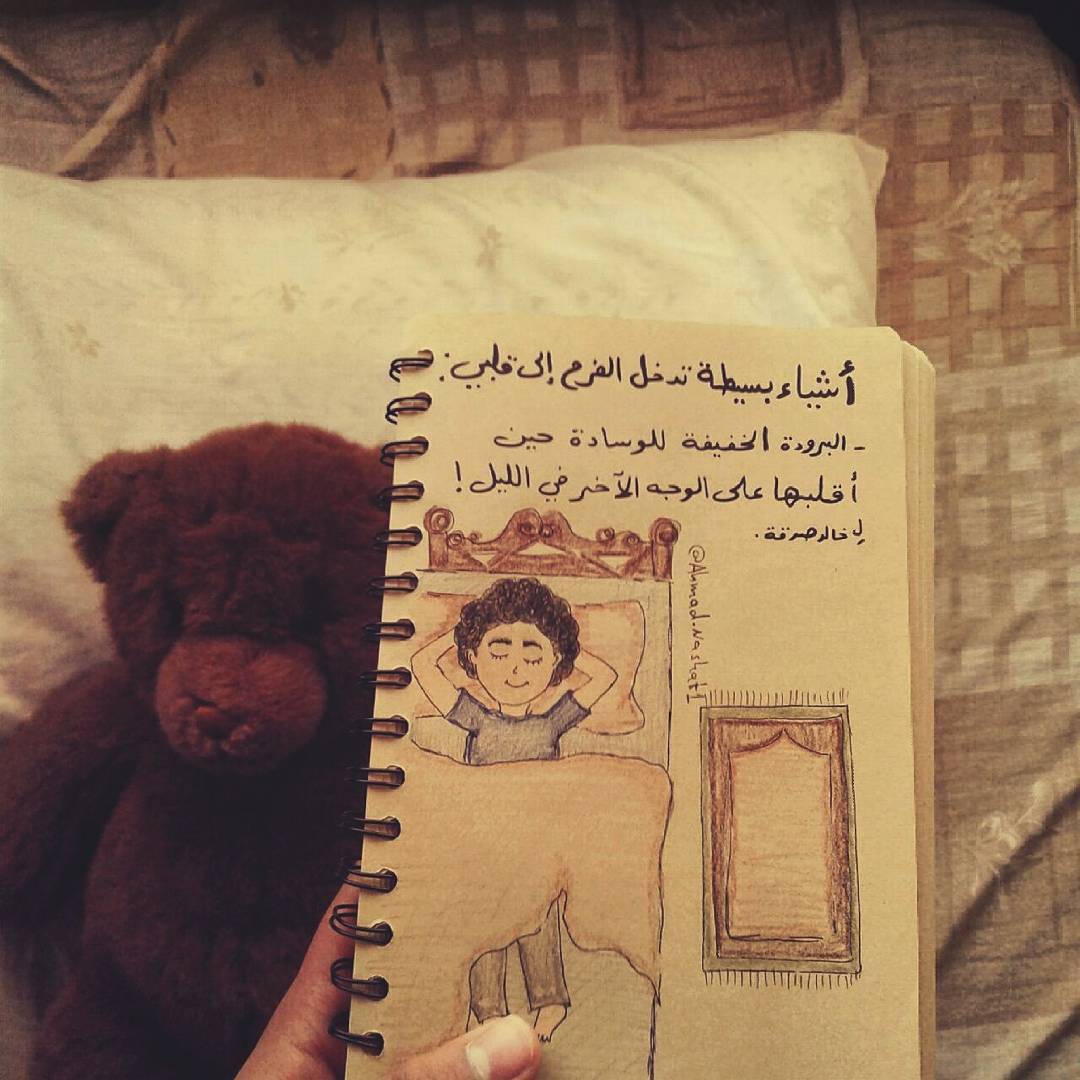 أشياء بسيطة تدخل الفرح إلى قلبي:
- البرودة الخفيفة للوسادة حين
أقلبها على الوجه الآخر في الليل!
لِ خالد صدقة.
@Ahmad.Nashat1